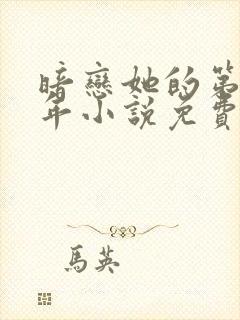 暗戀她的第
年小說免費
馬英